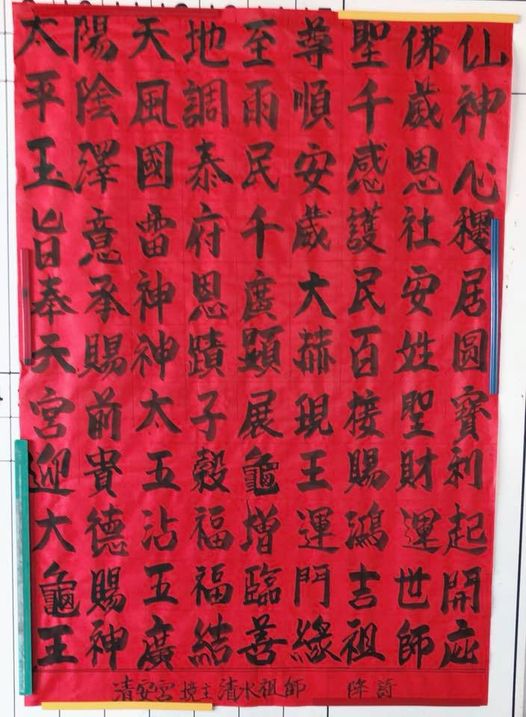 太陽天地至尊聖佛仙
平陰風調雨順千歲神
玉澤國泰民安感恩心
旨意雷府千歲護社稷
奉承神恩廣大民安居
天賜神蹟顯赫百姓圆
宮前太子展現接聖寳
迎貴五穀龜王賜財利
大德沾福增運鴻運起
龜賜五福臨門吉世開
王神廣結善緣祖師庇
清安宮 主 清水祖師 降詩